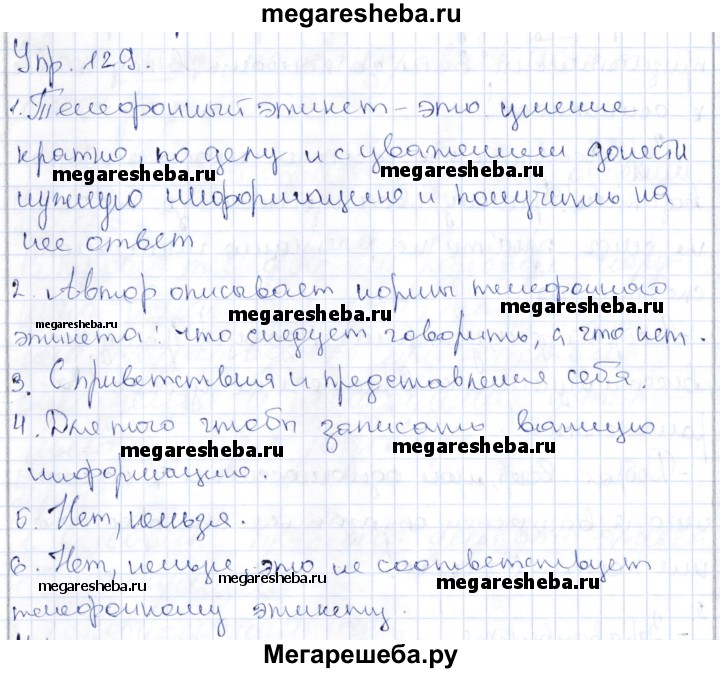 megaresheba.ru
Упр. 129.
1. Телефонный этикет – это умение
кратко, по делу и с уважением донести
megaresheba.ru megaresheba.ru
нужную информацию и получить на
нее ответ
2. Автор описывает нормы телефонного
megaresheba.ru megaresheba.ru megaresheba.ru
этикета: что следует говорить, а что нет.
3. С приветствия и представления себя.
4. Для того чтобы записать важную
megaresheba.ru megaresheba.ru
информацию.
5. Нет, нельзя.
6. Нет, нельзя, это не соответствует
megaresheba.ru megaresheba.ru megaresheba.ru
телефонному этикету.
Мегарешеба.ру